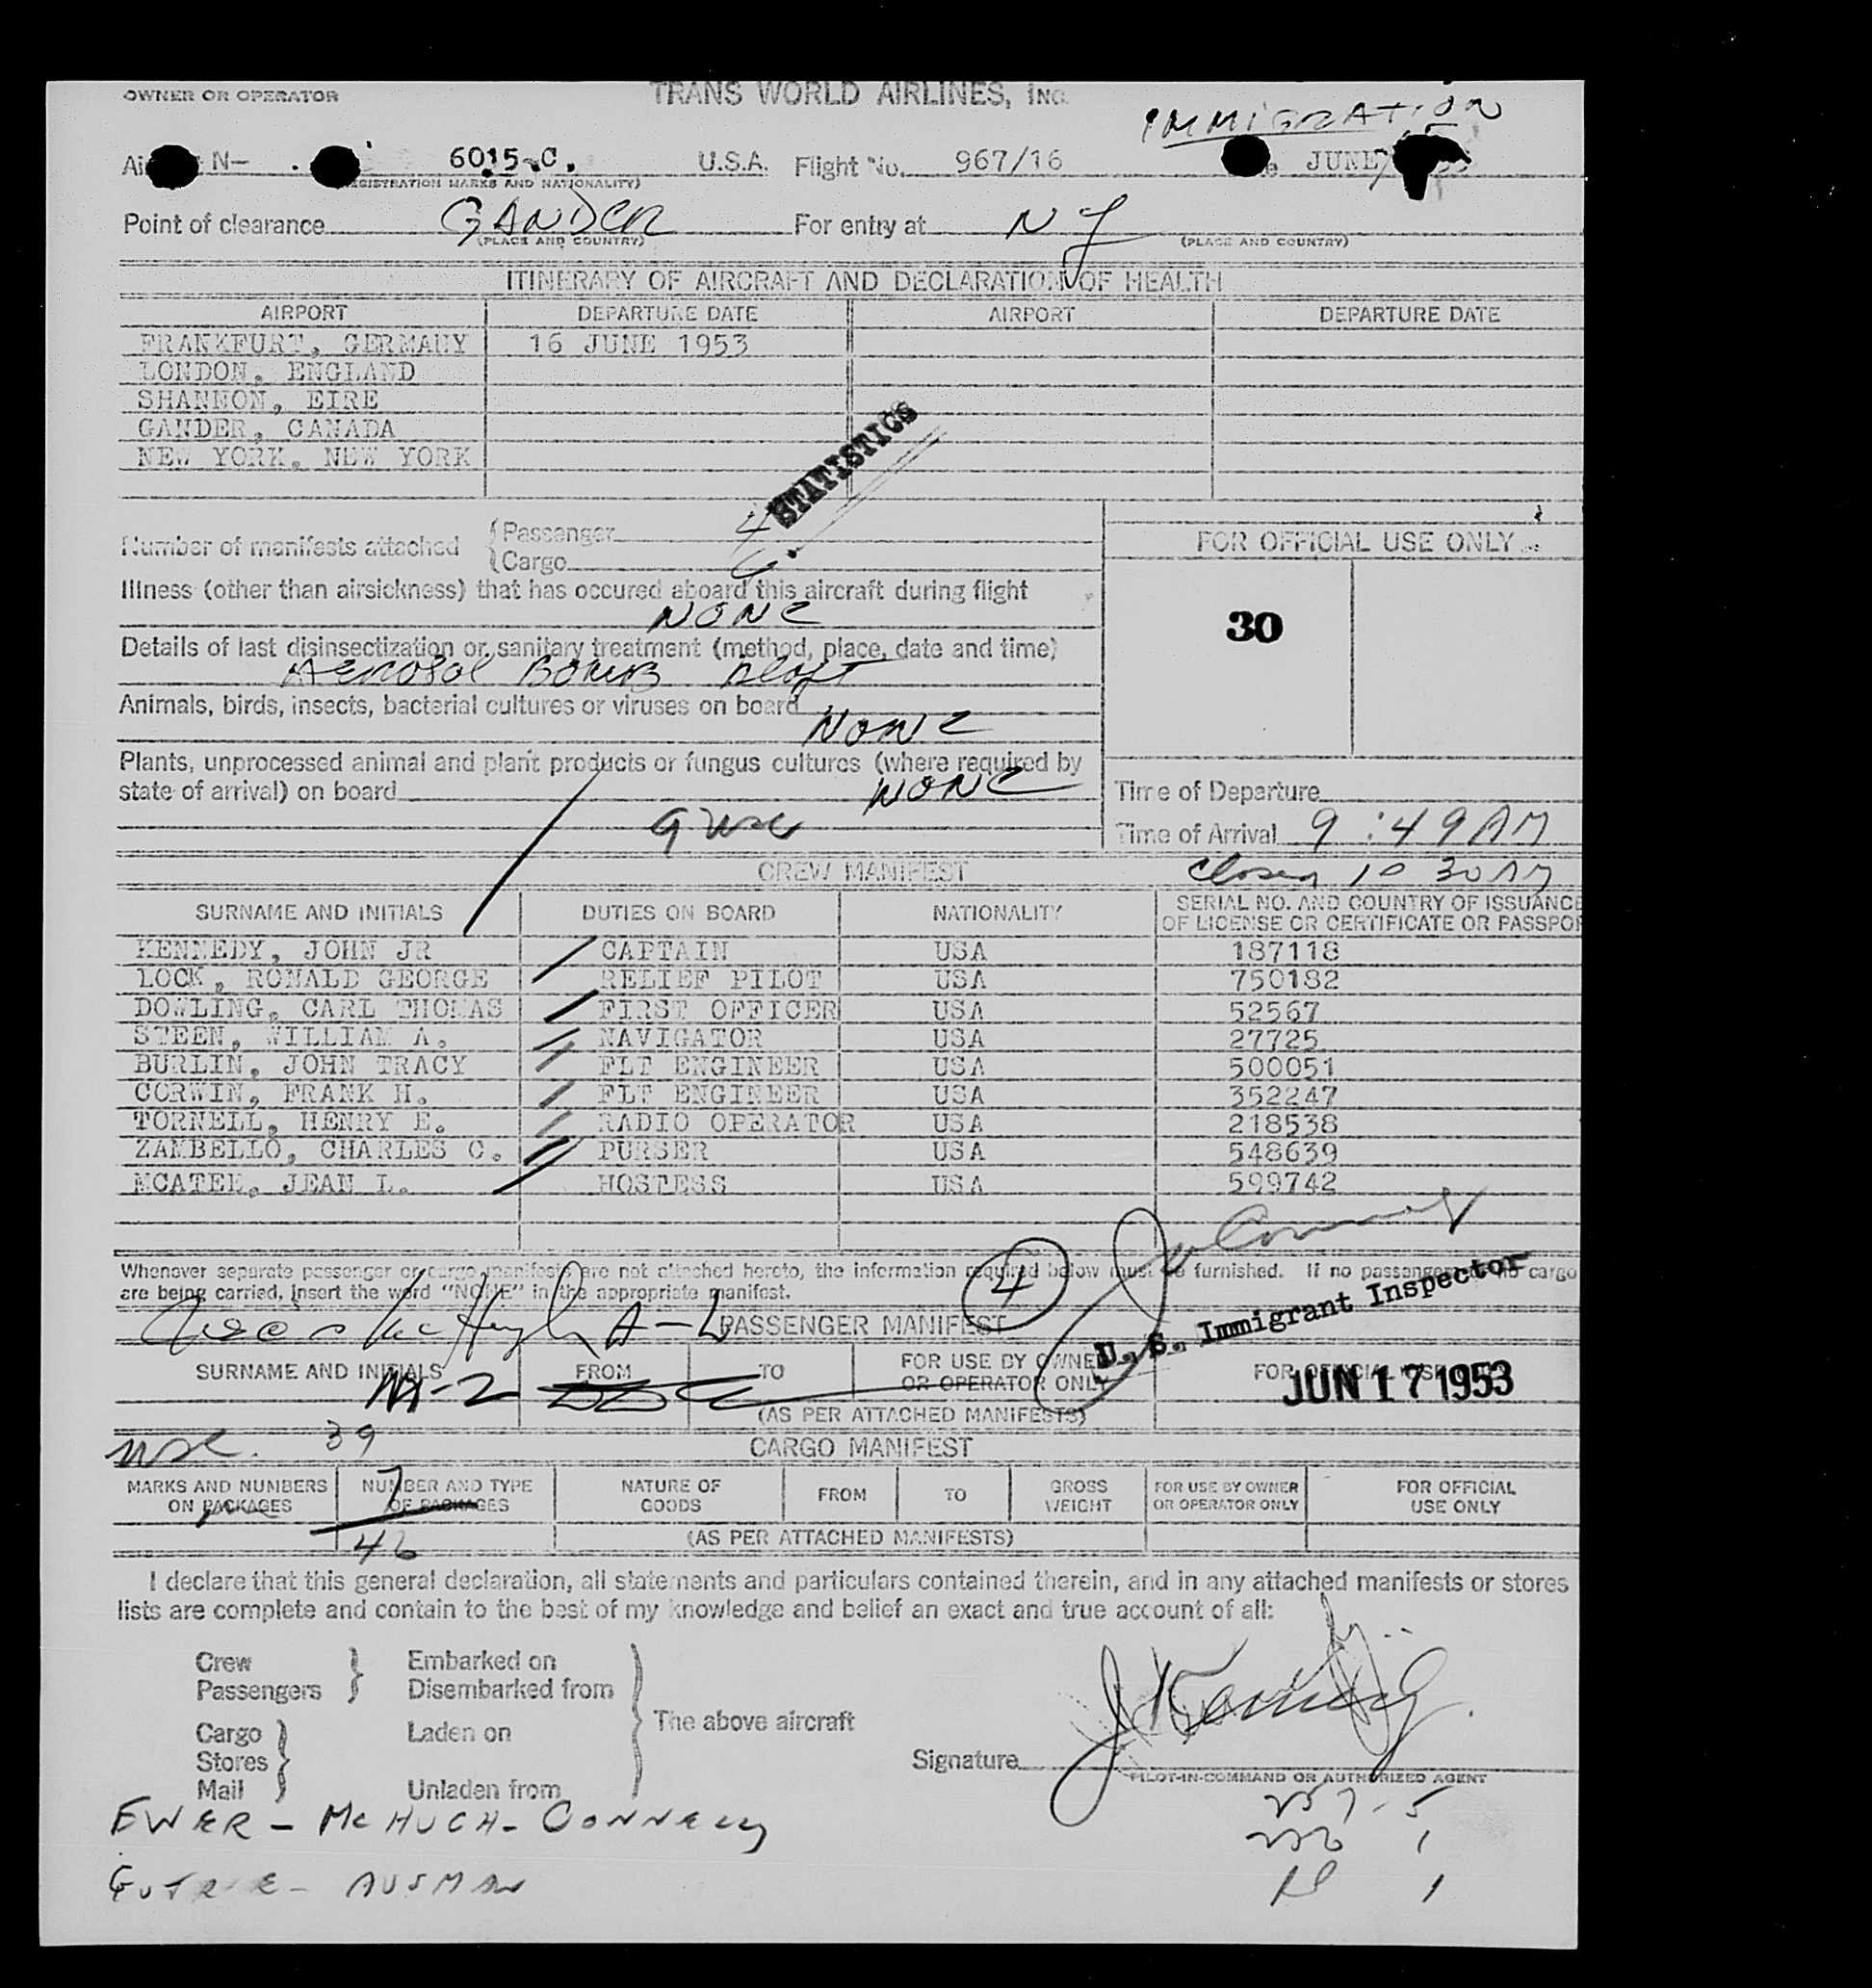 OWNER OR OPERATOR TRANS WORLD AIRLINES, INC.
IMMIGRATION
N- 6015-C. U.S.A. Flight No. 967/16 JUNE
(REGISTRATION MARKS AND NATIONALITY)
Point of clearance GANDER For entry at NY
(PLACE AND COUNTRY) (PLACE AND COUNTRY)
ITINERARY OF AIRCRAFT AND DECLARATION OF HEALTH
AIRPORT DEPARTURE DATE AIRPORT DEPARTURE DATE
FRANKFURT, GERMANY 16 JUNE 1953
LONDON, ENGLAND
SHANNON, EIRE
GANDER, CANADA
NEW YORK, NEW YORK
STATISTICS
Number of manifests attached { Passenger 4
{ Cargo
FOR OFFICIAL USE ONLY
Illness (other than airsickness) that has occured aboard this aircraft during flight
NONE
30
Details of last disinsectization or sanitary treatment (method, place, date and time)
AEROSOL BOMB
Animals, birds, insects, bacterial cultures or viruses on board
NONE
Plants, unprocessed animal and plant products or fungus cultures (where required by
state of arrival) on board NONE
Time of Departure
9 usc
Time of Arrival 9:49 AM
CREW MANIFEST
Closed 10 30 AM
SURNAME AND INITIALS DUTIES ON BOARD NATIONALITY SERIAL NO. AND COUNTRY OF ISSUANCE
OF LICENSE OR CERTIFICATE OR PASSPOR
KENNEDY, JOHN JR CAPTAIN USA 187118
LOCK, RONALD GEORGE RELIEF PILOT USA 750182
DOWLING, CARL THOMAS FIRST OFFICER USA 52567
STEEN, WILLIAM A. NAVIGATOR USA 27725
BURLIN, JOHN TRACY FLT ENGINEER USA 500051
CORWIN, FRANK H. FLT ENGINEER USA 352247
TORNELL, HENRY E. RADIO OPERATOR USA 218538
ZAMBELLO, CHARLES C. PURSER USA 548639
MCATEE, JEAN L. HOSTESS USA 599742
Whenever separate passenger or cargo manifests are not attached hereto, the information required below must be furnished. If no passengers or no cargo
are being carried, insert the word "NONE" in the appropriate manifest.
4
U. S. Immigrant Inspector
McHugh A-L PASSENGER MANIFEST
SURNAME AND INITIALS FROM TO FOR USE BY OWNER
OR OPERATOR ONLY FOR OFFICIAL USE ONLY
JUN 17 1953
M-Z
(AS PER ATTACHED MANIFESTS)
usc. 39
CARGO MANIFEST
MARKS AND NUMBERS
ON PACKAGES NUMBER AND TYPE
OF PACKAGES NATURE OF
GOODS FROM TO GROSS
WEIGHT FOR USE BY OWNER
OR OPERATOR ONLY FOR OFFICIAL
USE ONLY
7
46
(AS PER ATTACHED MANIFESTS)
I declare that this general declaration, all statements and particulars contained therein, and in any attached manifests or stores
lists are complete and contain to the best of my knowledge and belief an exact and true account of all:
Crew } Embarked on }
Passengers } Disembarked from }
Cargo } Laden on } The above aircraft
Stores }
Mail } Unladen from }
Signature J Kennedy
PILOT-IN-COMMAND OR AUTHORIZED AGENT
257-5
EWER - McHUGH - CONNELLY
1
AUSMAN
1